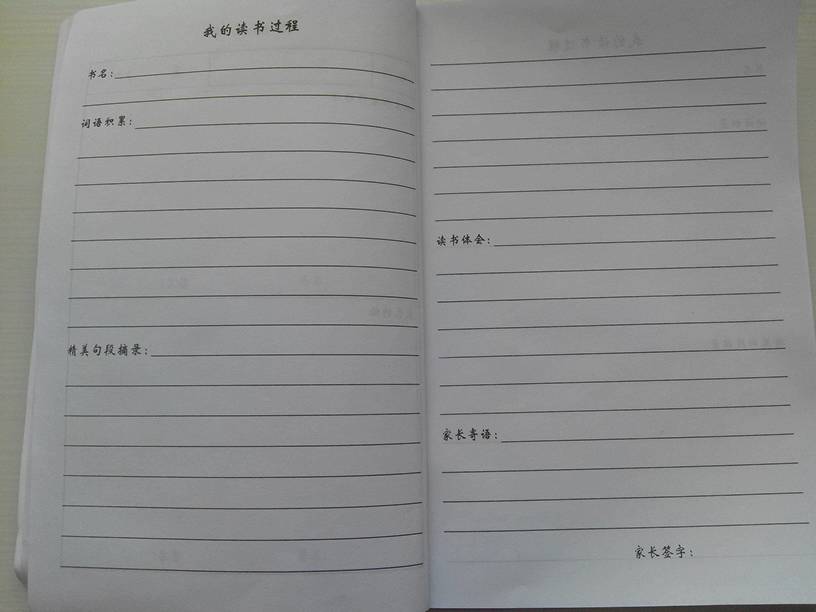 我的读书过程
书名:
词语积累:
精美句段摘录:
读书体会:
家长寄语:
家长签字: